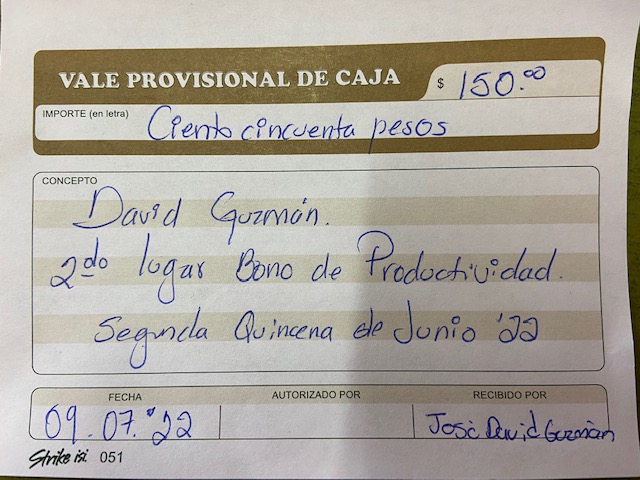 VALE PROVISIONAL DE CAJA
$ 150.00
IMPORTE (en letra)
Ciento cincuenta pesos
CONCEPTO
David Guzmán.
2do lugar Bono de Productividad.
Segunda Quincena de Junio '22
FECHA
AUTORIZADO POR
RECIBIDO POR
09.07.'22
José David Guzmán
Strike 051